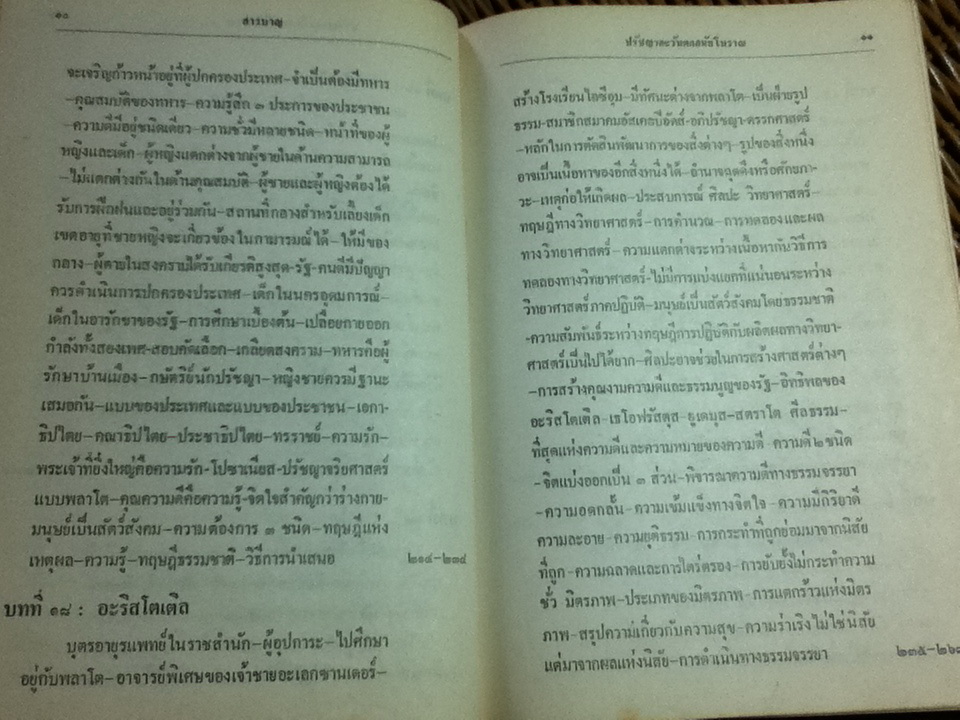 ๑๐ สารบาญ
จะเจริญก้าวหน้าอยู่ที่ผู้ปกครองประเทศ–จำเป็นต้องมีทหาร
–คุณสมบัติของทหาร–ความรู้สึก ๓ ประการของประชาชน
–ความดีมีอยู่ชนิดเดียว–ความชั่วมีหลายชนิด–หน้าที่ของผู้
หญิงและเด็ก–ผู้หญิงแตกต่างจากผู้ชายในด้านความสามารถ
–ไม่แตกต่างกันในด้านคุณสมบัติ–ผู้ชายและผู้หญิงต้องได้
รับการฝึกฝนและอยู่ร่วมกัน–สถานที่กลางสำหรับเลี้ยงเด็ก
เขตอายุที่ชายหญิงจะเกี่ยวข้องในกามารมณ์ได้–ให้มีของ
กลาง–ผู้ตายในสงครามได้รับเกียรติสูงสุด–รัฐ–คนดีมีปัญญา
ควรดำเนินการปกครองประเทศ–เด็กในนครอุดมการณ์–
เด็กในอารักขาของรัฐ–การศึกษาเบื้องต้น–เปลือยกายออก
กำลังทั้งสองเพศ–สอบคัดเลือก–เกลียดสงคราม–ทหารคือผู้
รักษาบ้านเมือง–กษัตริย์นักปรัชญา–หญิงชายควรมีฐานะ
เสมอกัน–แบบของประเทศและแบบของประชาชน–เอกา–
ธิปไตย–คณาธิปไตย–ประชาธิปไตย–ทรราชย์–ความรัก–
พระเจ้าที่ยิ่งใหญ่คือความรัก–โปซาเนียส–ปรัชญาจริยศาสตร์
แบบพลาโต–คุณความดีคือความรู้–จิตใจสำคัญกว่าร่างกาย–
มนุษย์เป็นสัตว์สังคม–ความต้องการ ๓ ชนิด–ทฤษฎีแห่ง
เหตุผล–ความรู้–ทฤษฎีธรรมชาติ–วิธีการนำเสนอ ๒๑๔–๒๓๔
บทที่ ๑๘ : อะริสโตเติล
บุตรอายุรแพทย์ในราชสำนัก–ผู้อุปการะ–ไปศึกษา
อยู่กับพลาโต–อาจารย์พิเศษของเจ้าชายอะเลกซานเดอร์–
ปรัชญาตะวันตกสมัยโบราณ ๑๑
สร้างโรงเรียนไลซีอุม–มีทัศนะต่างจากพลาโต–เป็นฝ่ายรูป
ธรรม–สมาชิกสมาคมอัสเคลปีอัดส์–อภิปรัชญา–ตรรกศาสตร์
–หลักในการตัดสินพัฒนาการของสิ่งต่างๆ–รูปของสิ่งหนึ่ง
อาจเป็นเนื้อหาของอีกสิ่งหนึ่งได้–อำนาจฉุดดึงหรือศักยภา–
วะ–เหตุก่อให้เกิดผล–ประสบการณ์ ศิลปะ วิทยาศาสตร์
ทฤษฎีทางวิทยาศาสตร์–การคำนวณ–การทดลองและผล
ทางวิทยาศาสตร์–ความแตกต่างระหว่างเนื้อหากับวิธีการ
ทดลองทางวิทยาศาสตร์–ไม่มีการแบ่งแยกที่แน่นอนระหว่าง
วิทยาศาสตร์ภาคปฏิบัติ–มนุษย์เป็นสัตว์สังคมโดยธรรมชาติ
–ความสัมพันธ์ระหว่างทฤษฎีการปฏิบัติกับผลิตผลทางวิทยา–
ศาสตร์เป็นไปได้ยาก–ศิลปะอาจช่วยในการสร้างศาสตร์ต่างๆ
–การสร้างคุณงามความดีและธรรมนูญของรัฐ–อิทธิพลของ
อะริสโตเติล–เธโอฟรัสตุส–ยูเดมุส–สตราโต ศีลธรรม–
ที่สุดแห่งความดีและความหมายของความดี ความดี๒ชนิด
–จิตแบ่งออกเป็น ๓ ส่วน–พิจารณาความดีทางธรรมจรรยา
–ความอดกลั้น–ความเข้มแข็งทางจิตใจ–ความมีกิริยาดี
ความละอาย–ความยุติธรรม–การกระทำที่ถูกย่อมมาจากนิสัย
ที่ถูก–ความฉลาดและการไตร่ตรอง–การยับยั้งไม่กระทำความ
ชั่ว มิตรภาพ–ประเภทของมิตรภาพ–การแตกร้าวแห่งมิตร
ภาพ–สรุปความเกี่ยวกับความสุข–ความร่าเริงไม่ใช่นิสัย
แต่มาจากผลแห่งนิสัย–การดำเนินทางธรรมจรรยา